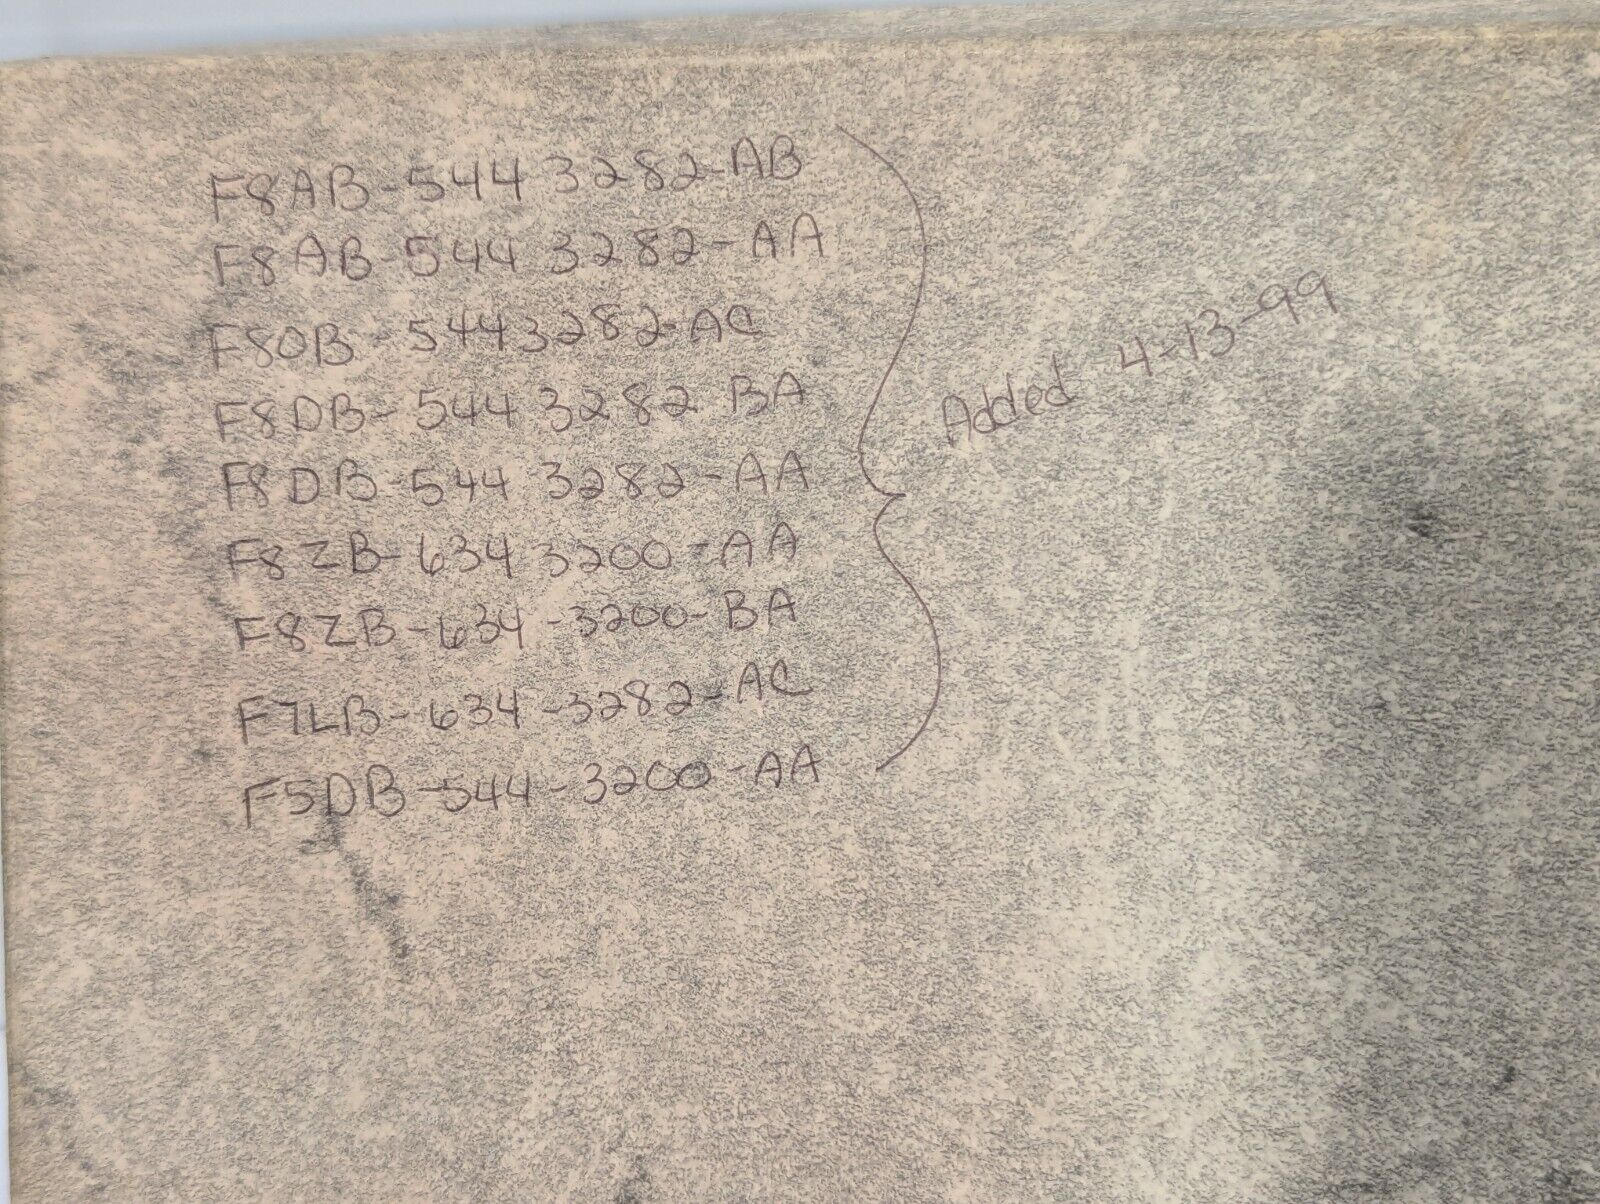 F8AB-544 3282-AB
F8AB-544 3282-AA
F80B-5443282-AC
F8DB-544 3282 BA
F8DB-544 3282-AA
F8ZB-634 3200-AA
F8ZB-634-3200-BA
F7LB-634-3282-AC
F5DB-544-3200-AA
Added 4-13-99